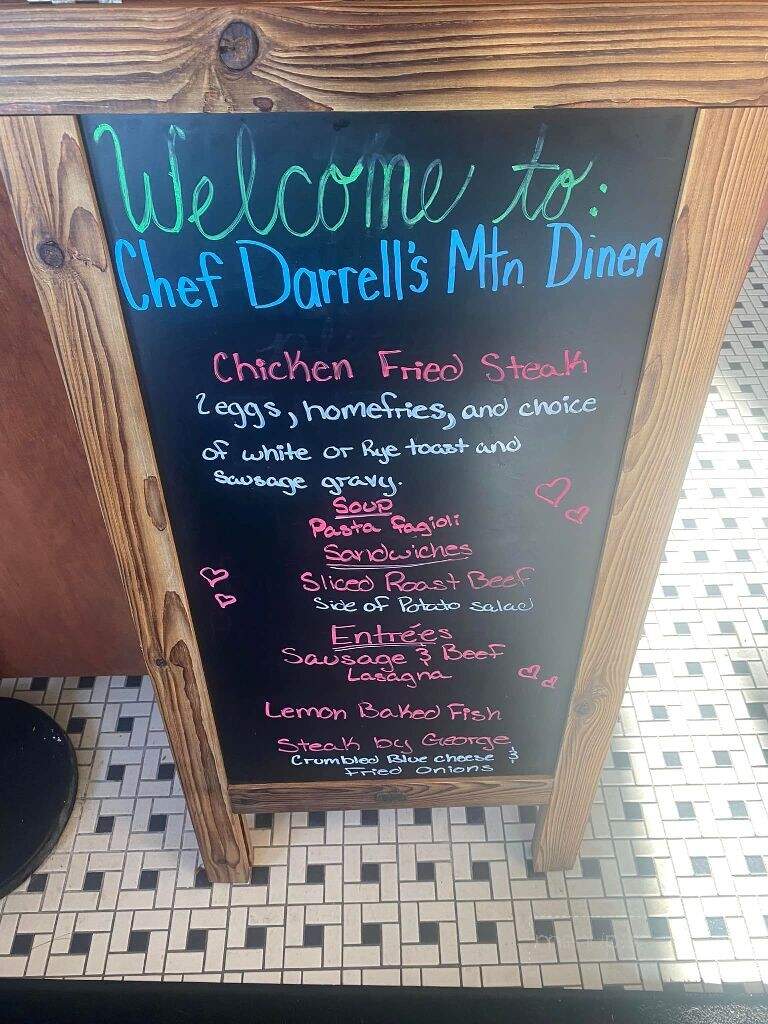 Welcome to:
Chef Darrell's Mtn Diner
Chicken Fried Steak
2 eggs, homefries, and choice
of white or Rye toast and
Sausage gravy.
Soup
Pasta fagioli
Sandwiches
Sliced Roast Beef
Side of Potato salad
Entrées
Sausage & Beef
Lasagna
Lemon Baked Fish
Steak by George
Crumbled Blue cheese &
Fried Onions